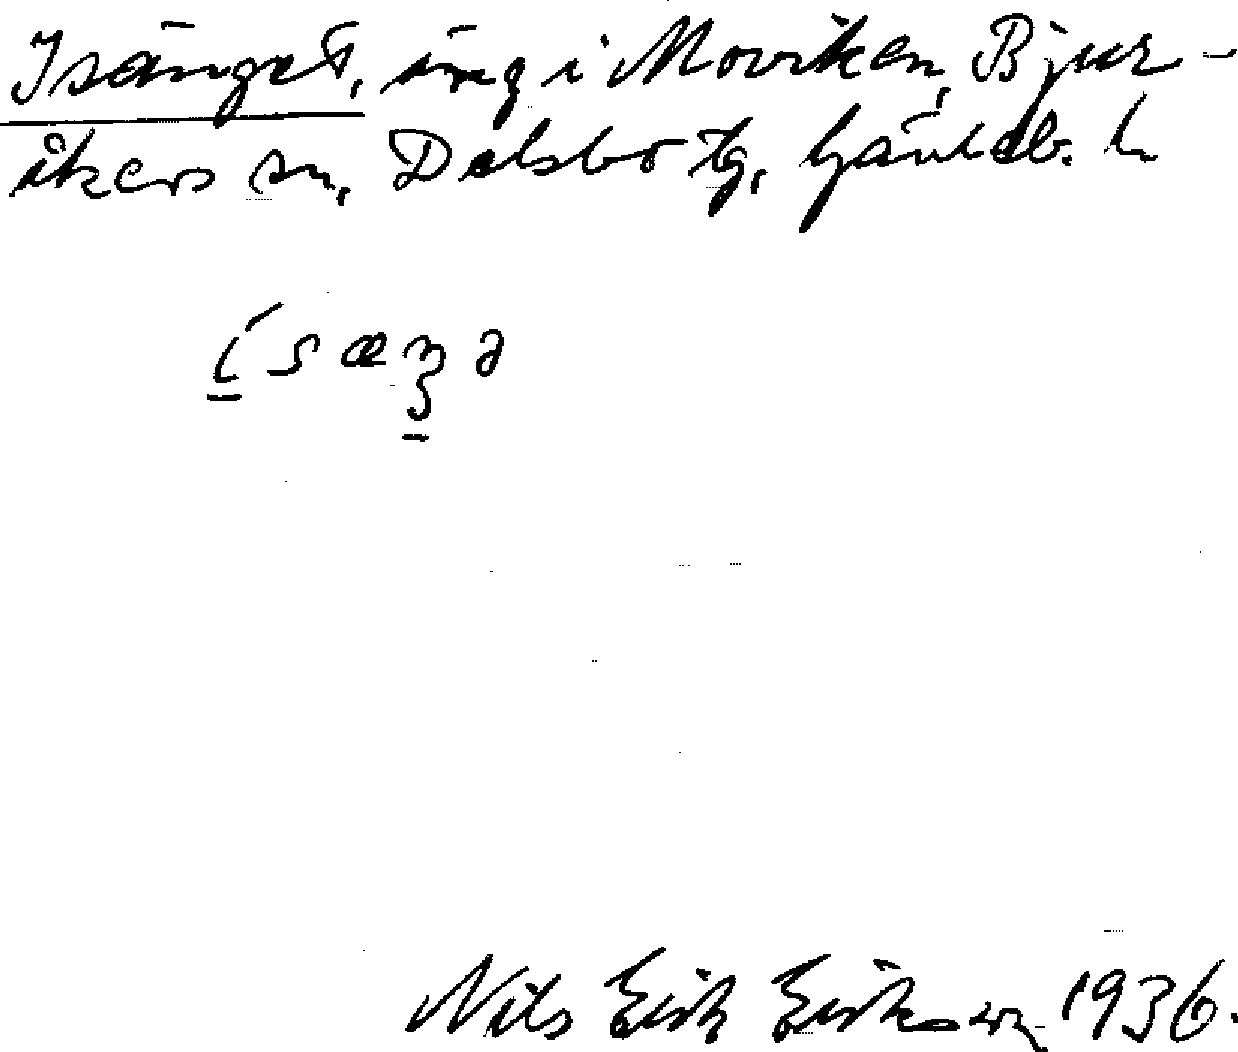 Isänget, äng i Moviken, Bjur-
åkers sn, Delsbo tg, Gävleb. l.
Nils Erik Eriksson 1936.